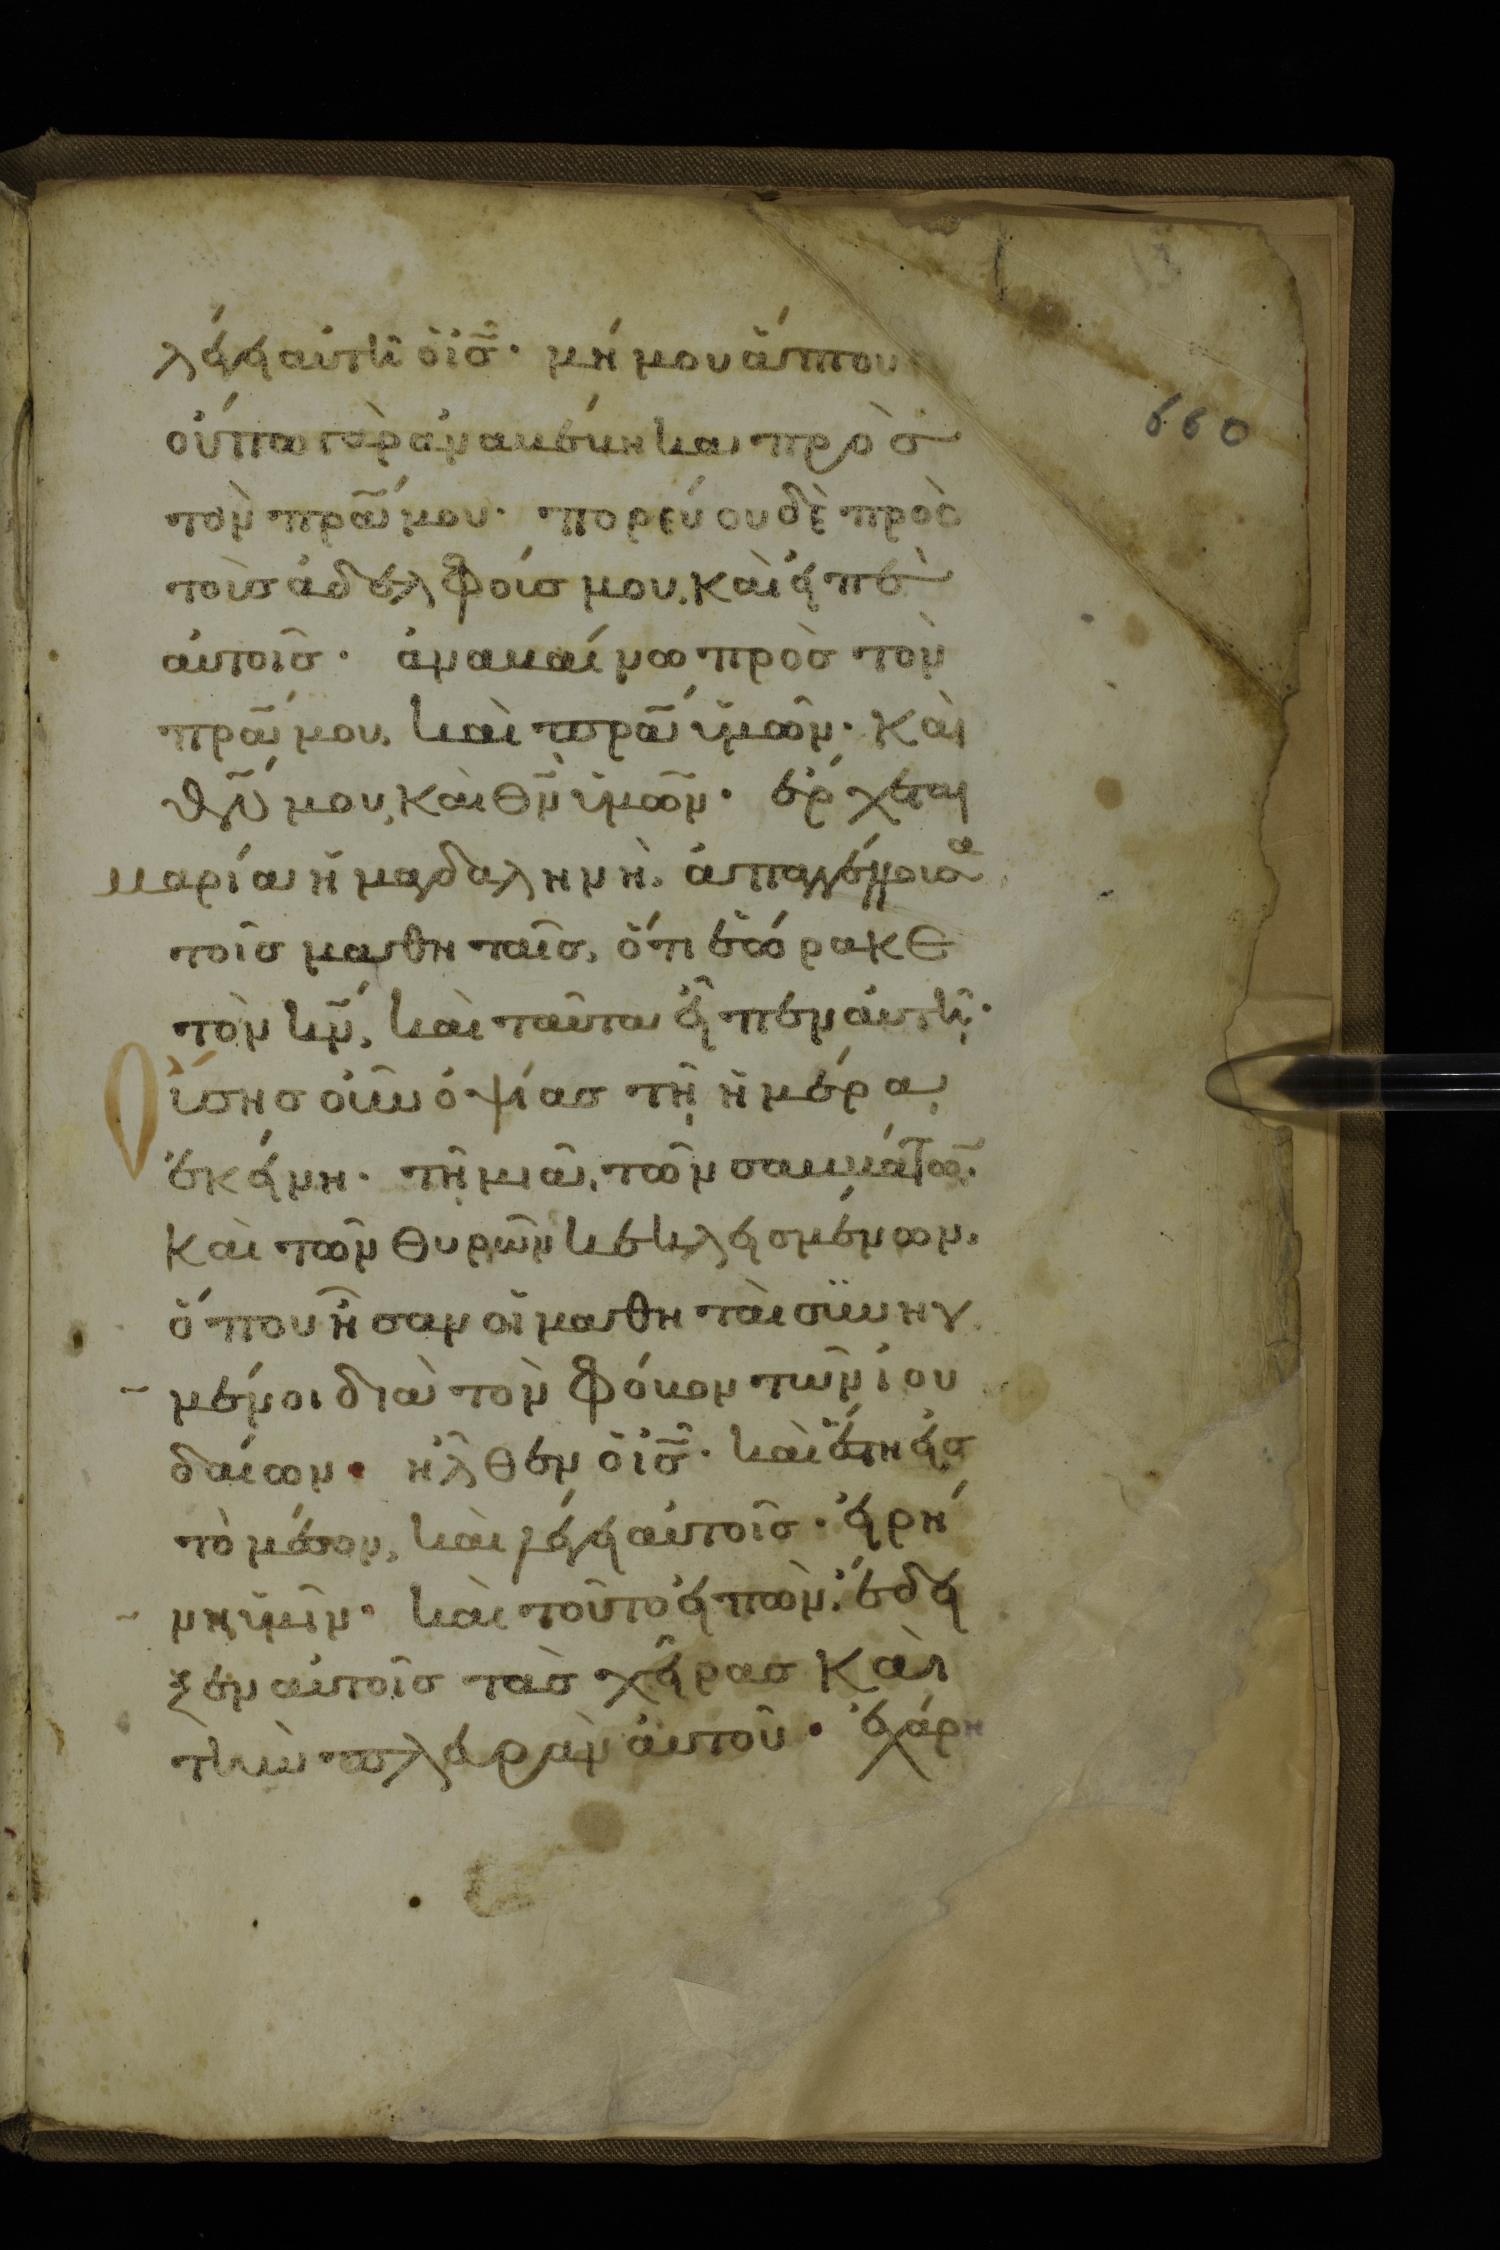 660
λέγει αὐτῆ ὁ ἰσ̅· μή μου ἅπτου
οὔπω γὰρ ἀναβέβηκα πρὸσ
τὸν πρ̅α μου· πορεύου δὲ πρὸσ
τοὺσ ἀδελφούσ μου, καὶ εἰπὲ
αὐτοῖσ· ἀναβαίνω πρὸσ τὸν
πρ̅α μου, καὶ πρ̅α ὑμῶν· καὶ
θν̅ μου, καὶ θν̅ ὑμῶν· ἔρχεται
μαρία ἡ μαγδαληνὴ, ἀπαγγέλλουσα
τοῖσ μαθηταῖσ, ὅτι ἑώρακε
τὸν κν̅, καὶ ταῦτα εἶπεν αὐτῆ·
Οὔσησ οὖν ὀψίασ τῆ ἡμέρα
ἐκείνη· τῆ μιᾶ, τῶν σαββάτων,
καὶ τῶν θυρῶν κεκλεισμένων,
ὅπου ἦσαν οἱ μαθηταὶ συνηγ
μένοι διὰ τὸν φόβον τῶν ἰου
δαίων· ἦλθεν ὁ ἰσ̅· καὶ ἔστη εἰσ
τὸ μέσον, καὶ λέγει αὐτοῖσ· εἰρή
νη ὑμῖν· καὶ τοῦτο εἰπὼν, ἔδει
ξεν αὐτοῖσ τὰσ χεῖρασ καὶ
τὴν πλευρὰν αὐτοῦ· ἐχάρη